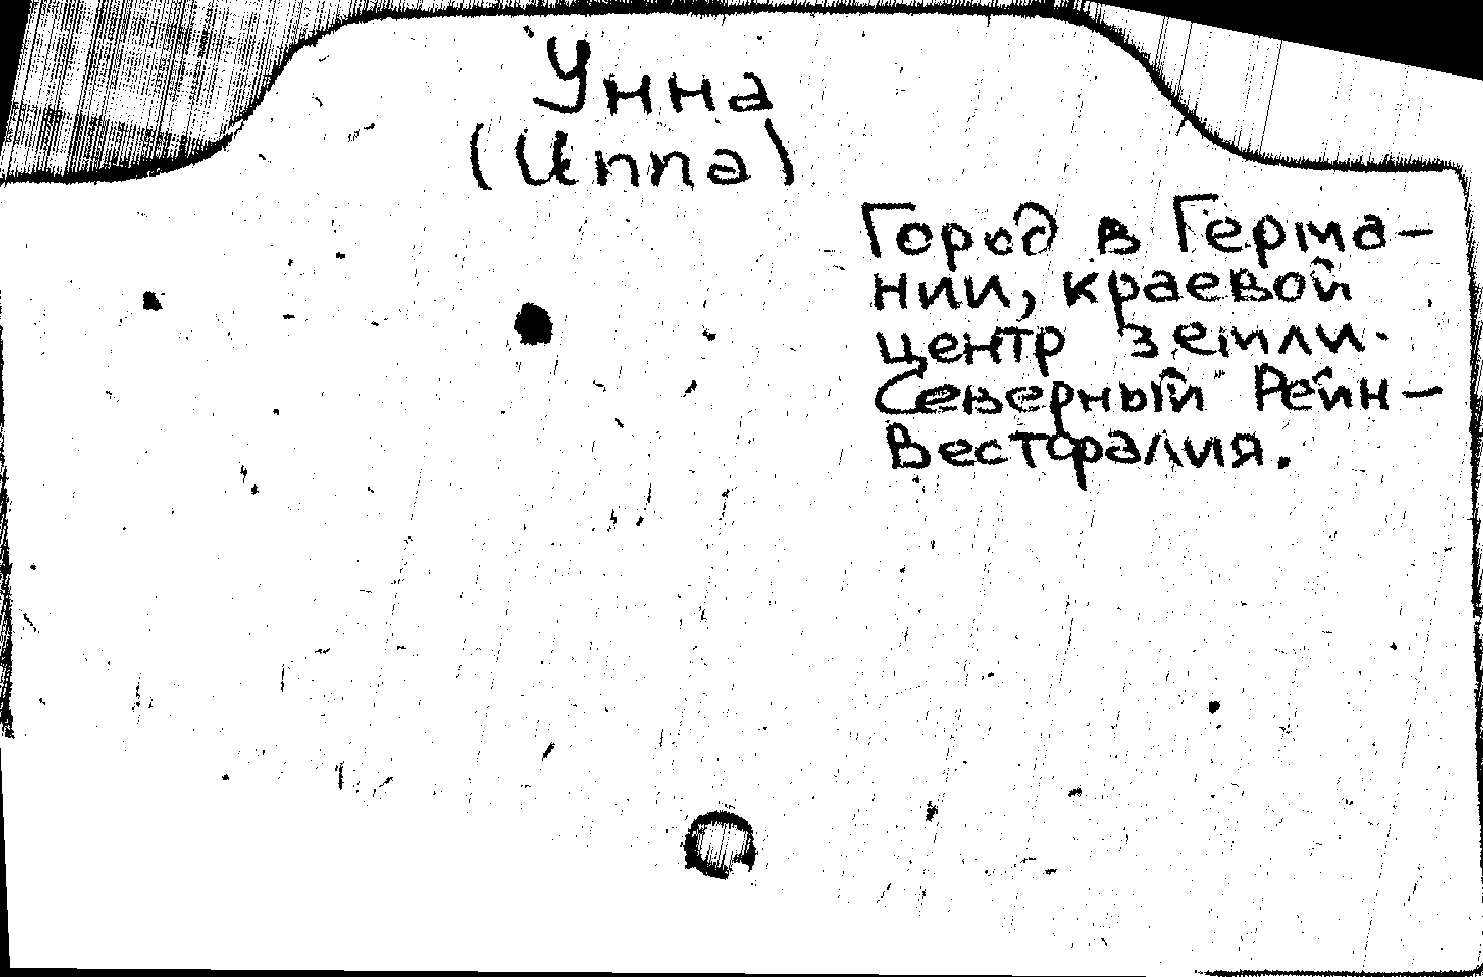 Унна
(Unna)
Город в Герма-
нии, краевой
центр земли
Северный Рейн-
Вестфалия.